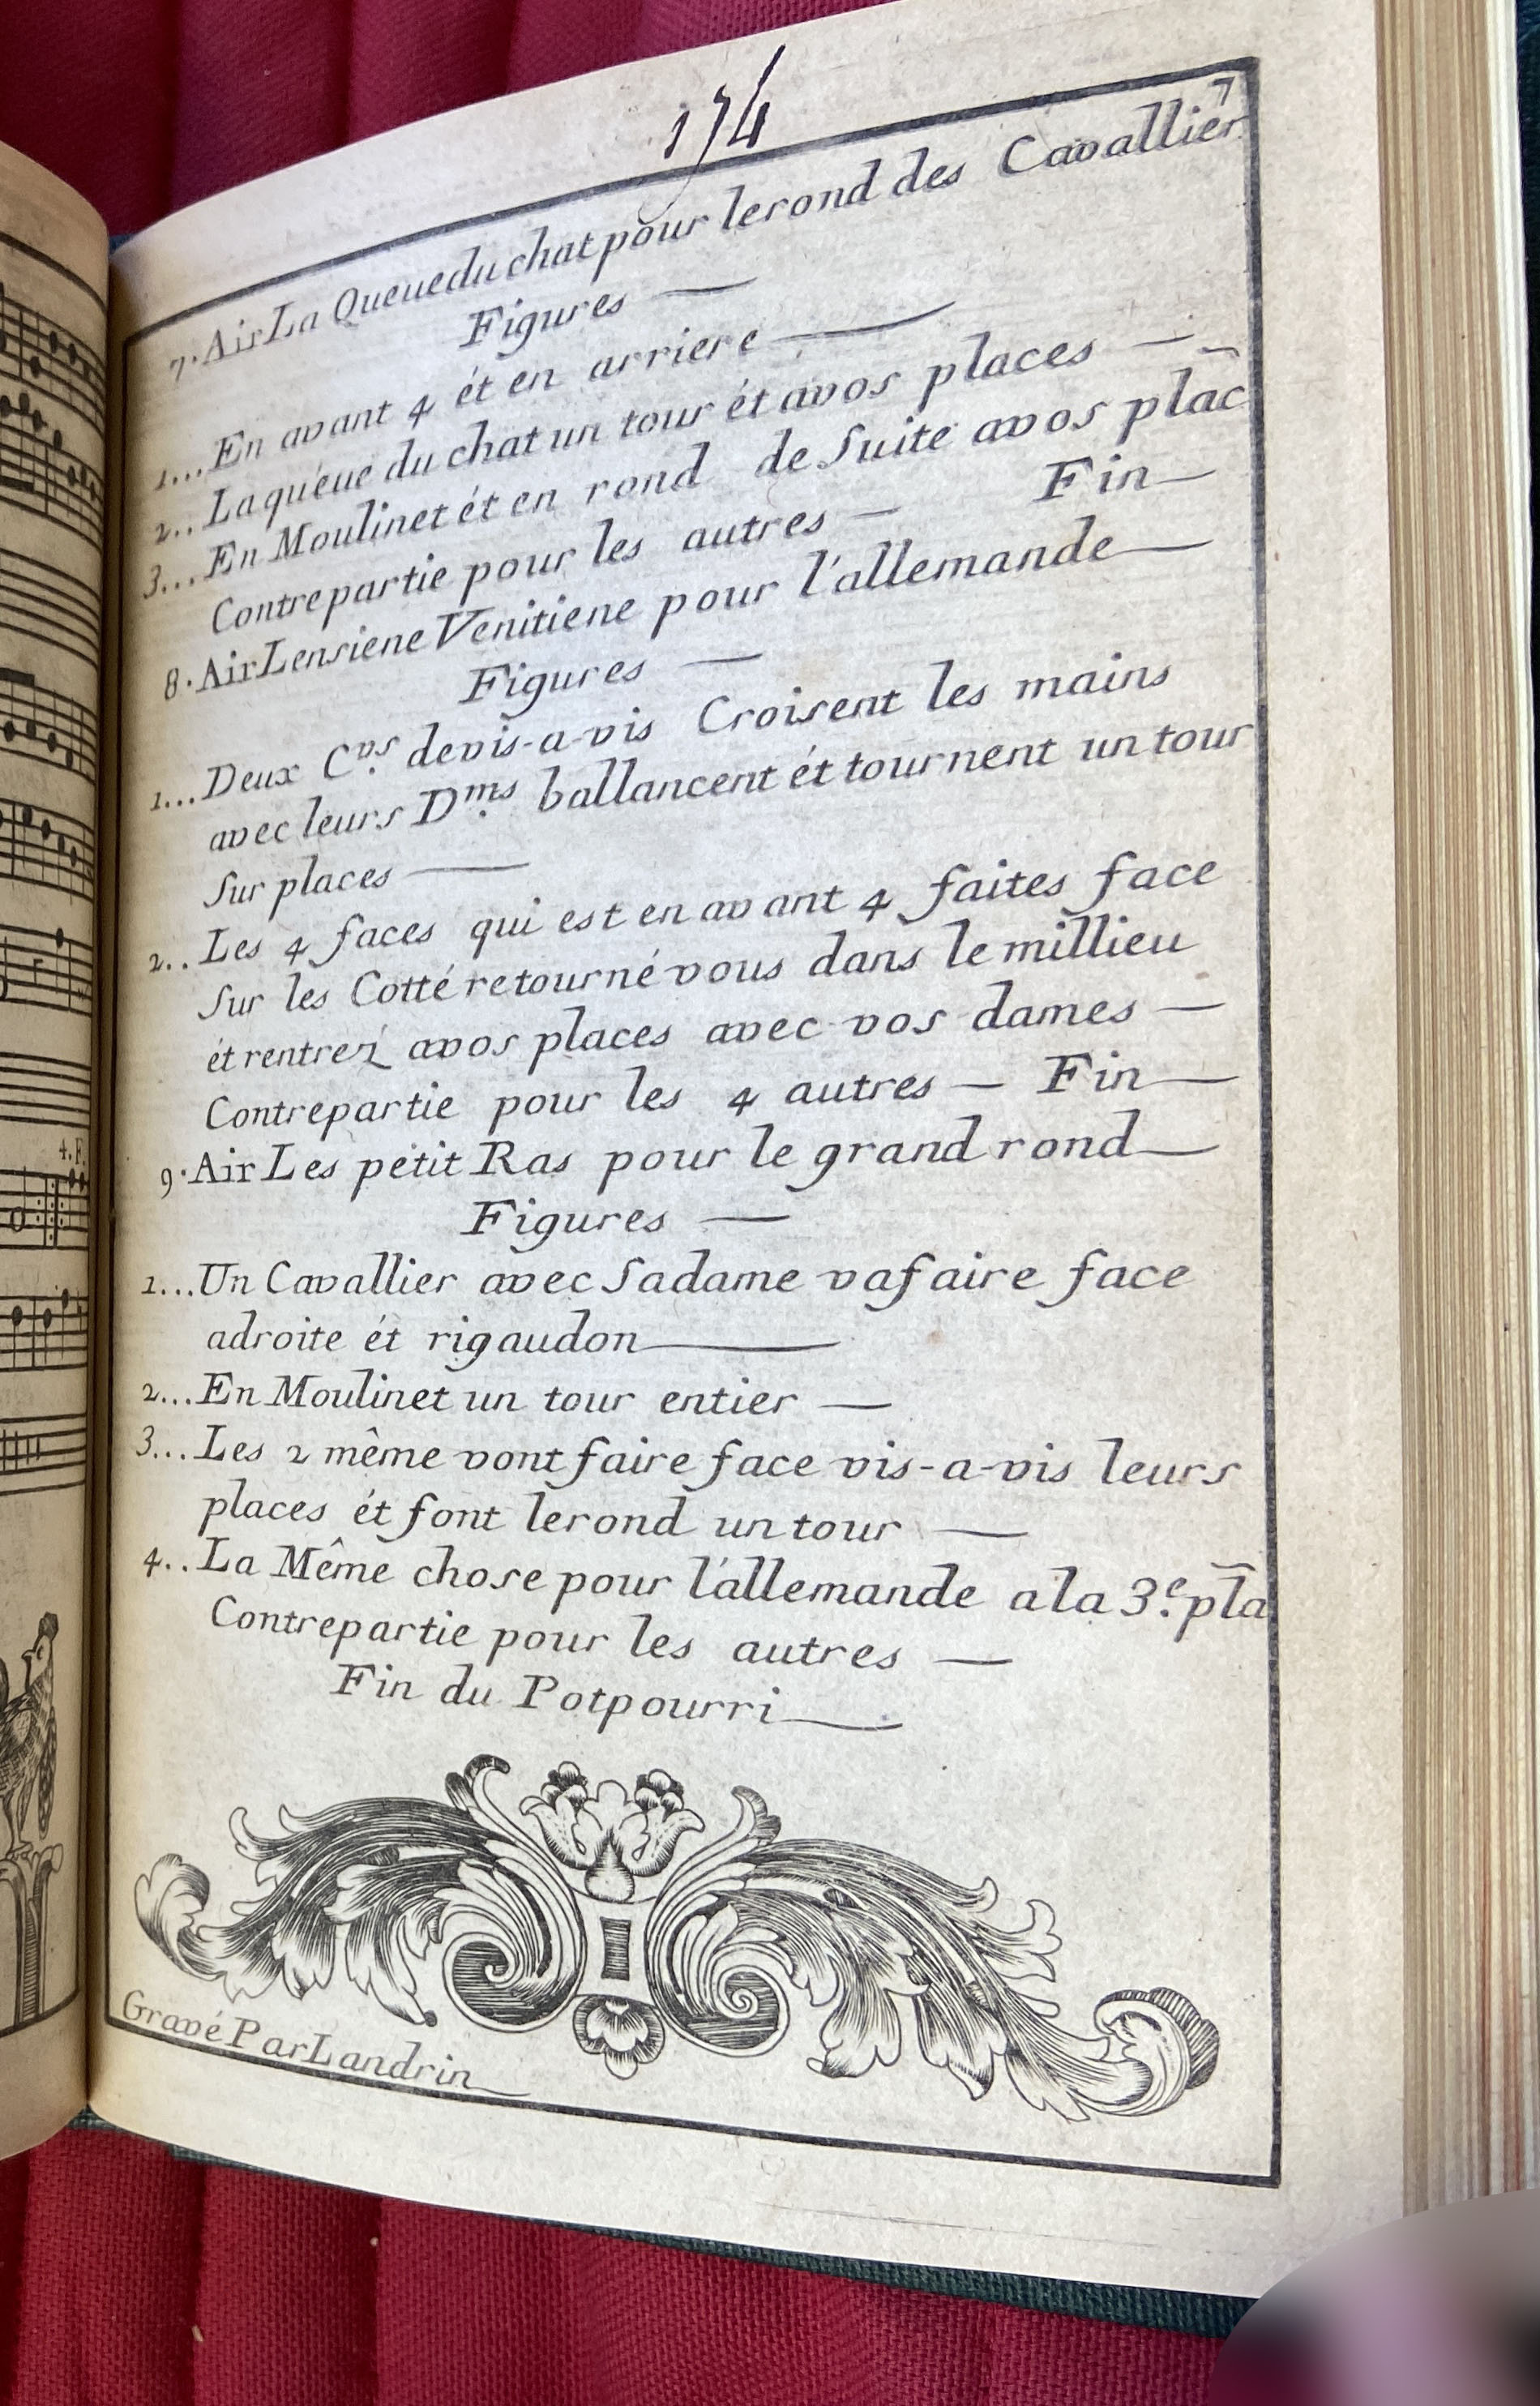 174
7
7. Air La Queue du chat pour le rond des Cavallier
Figures —
1... En avant 4 ét en arriere —
2.. La quéue du chat un tour ét a vos places —
3... En Moulinet ét en rond de Suite a vos plac̄
Contrepartie pour les autres — Fin —
8. Air Lensiene Venitiene pour l'allemande —
Figures —
1... Deux C.vrs de vis-a-vis Croisent les mains
avec leurs D.ms ballancent ét tournent un tour
Sur places —
2.. Les 4 faces qui est en avant 4 faites face
Sur les Cotté retourné vous dans le millieu
ét rentrez a vos places avec vos dames —
Contrepartie pour les 4 autres — Fin —
9. Air Les petit Ras pour le grand rond —
Figures —
1... Un Cavallier avec Sa dame va faire face
a droite ét rigaudon —
2... En Moulinet un tour entier —
3... Les 2 même vont faire face vis-a-vis leurs
places ét font le rond un tour —
4.. La Même chose pour l'allemande a la 3.e plā
Contrepartie pour les autres —
Fin du Potpourri —
Gravé Par Landrin